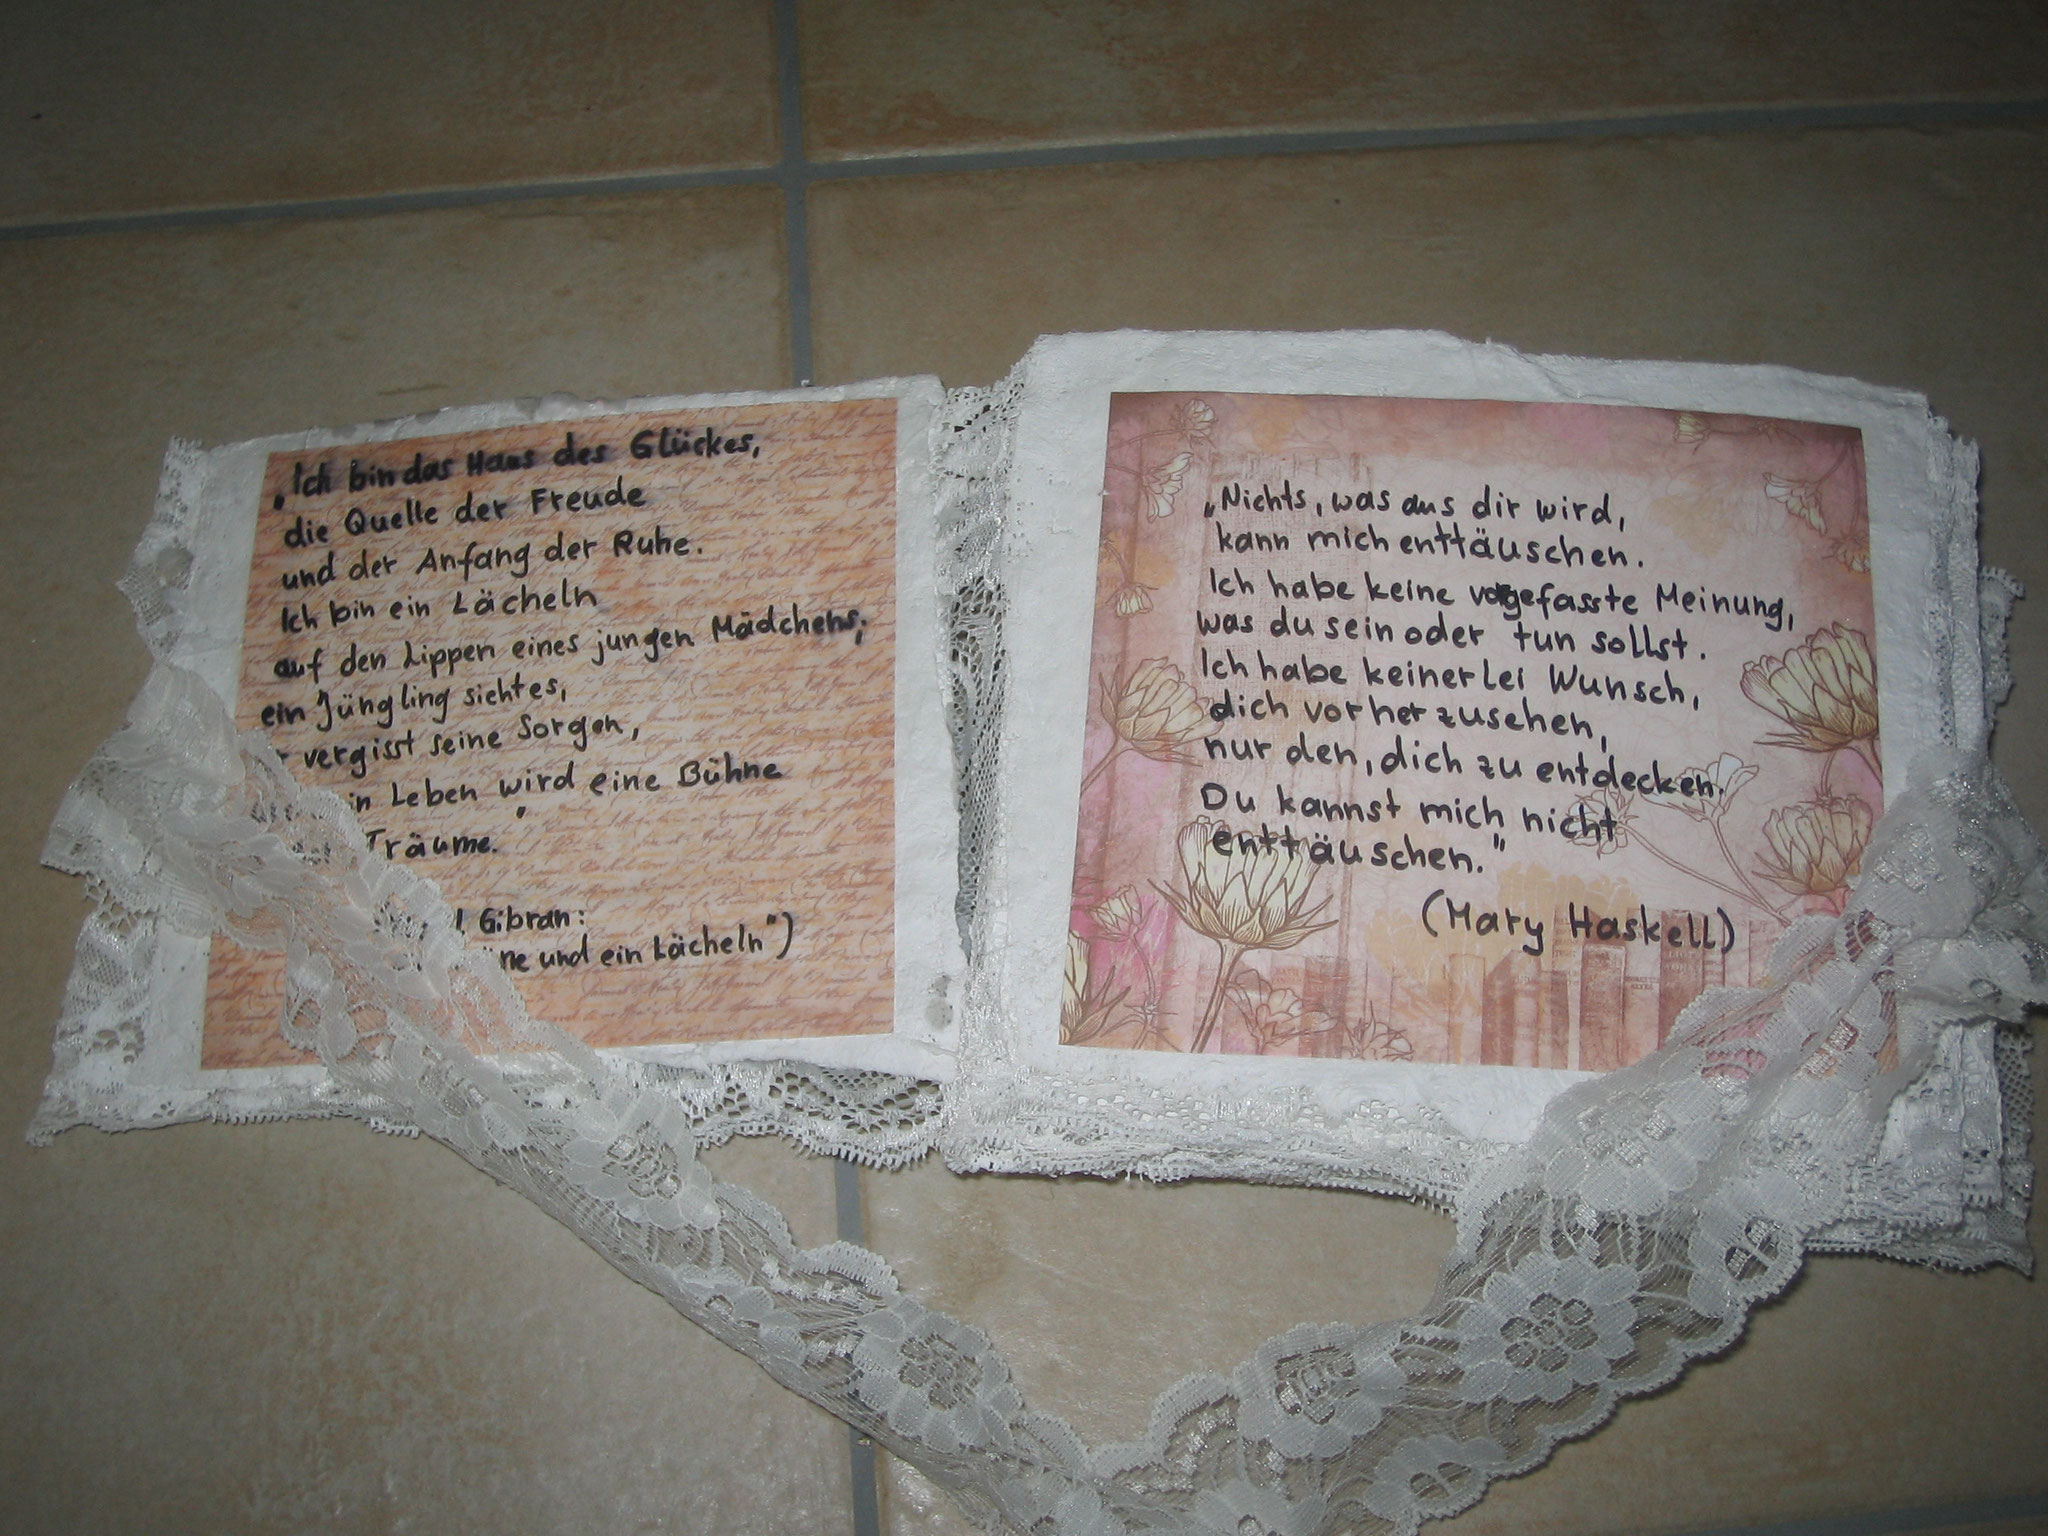 „Ich bin das Haus des Glückes,
die Quelle der Freude
und der Anfang der Ruhe.
Ich bin ein Lächeln
auf den Lippen eines jungen Mädchens;
ein Jüngling sieht es,
vergisst seine Sorgen,
Leben wird eine Bühne
Träume."
Gibran:
und ein Lächeln")
„Nichts, was aus dir wird,
kann mich enttäuschen.
Ich habe keine vorgefasste Meinung,
was du sein oder tun sollst.
Ich habe keinerlei Wunsch,
dich vorherzusehen,
nur den, dich zu entdecken.
Du kannst mich nicht
enttäuschen."
(Mary Haskell)